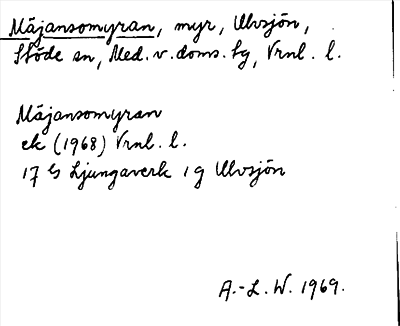 Mäjansomyran, myr, Ulvsjön,
Stöde sn, Med. v. doms. tg, Vrnl. l.
Mäjansomyran
ek (1968) Vrnl. l.
17 G Ljungaverk 1 g Ulvsjön
A.-L. W. 1969.